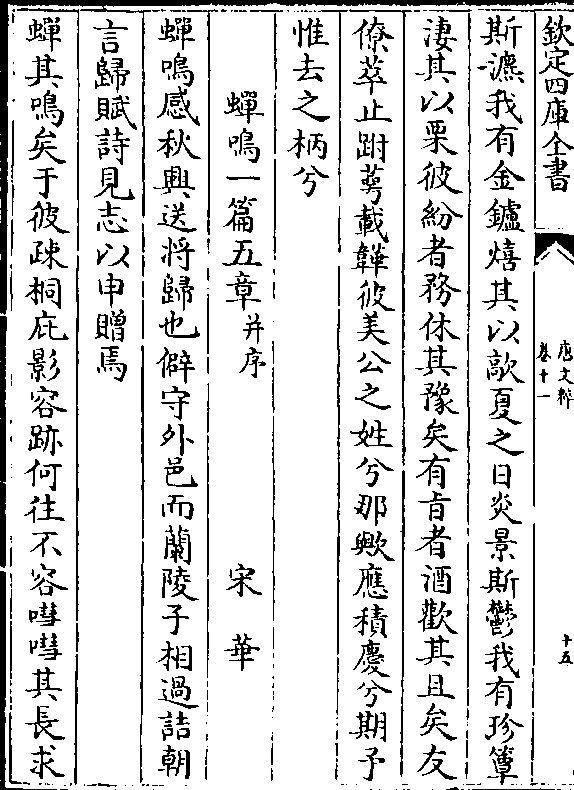 欽定四庫全書
唐文粹
卷十一
十五
斯濃我有金鑪熺其以歊夏之日炎景斯鬱我有珍簟
淒其以栗彼紛者務休其豫矣有旨者酒歡其且矣友
僚萃止跗萼載韡彼美公之姓兮那歟應積慶兮期予
惟去之柄兮
蟬鳴一篇五章并序
宋華
蟬鳴感秋興送將歸也僻守外邑而蘭陵子相過詰朝
言歸賦詩見志以申贈焉
蟬其鳴矣于彼疎桐庇影容跡何往不容嘒嘒其長求